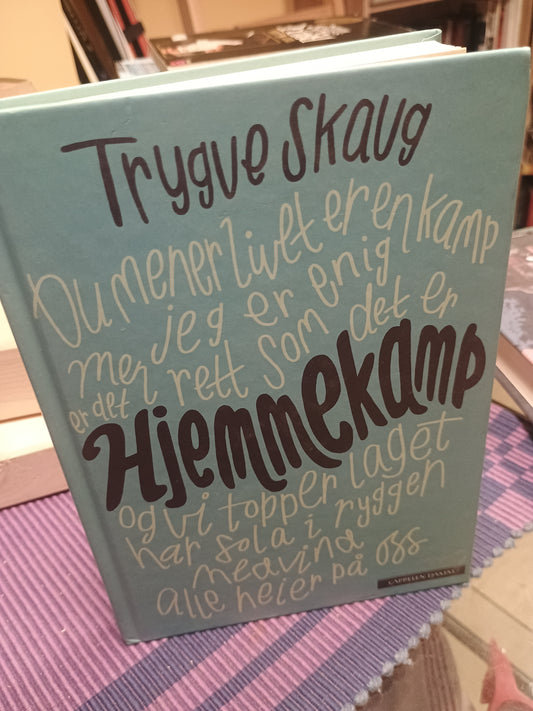 Trygve Skaug
Du mener livet er en kamp
jeg er enig
men rett som det er
er det
Hjemmekamp
og vi topper laget
har sola i ryggen
medvind
alle heier på oss
CAPPELEN DAMM